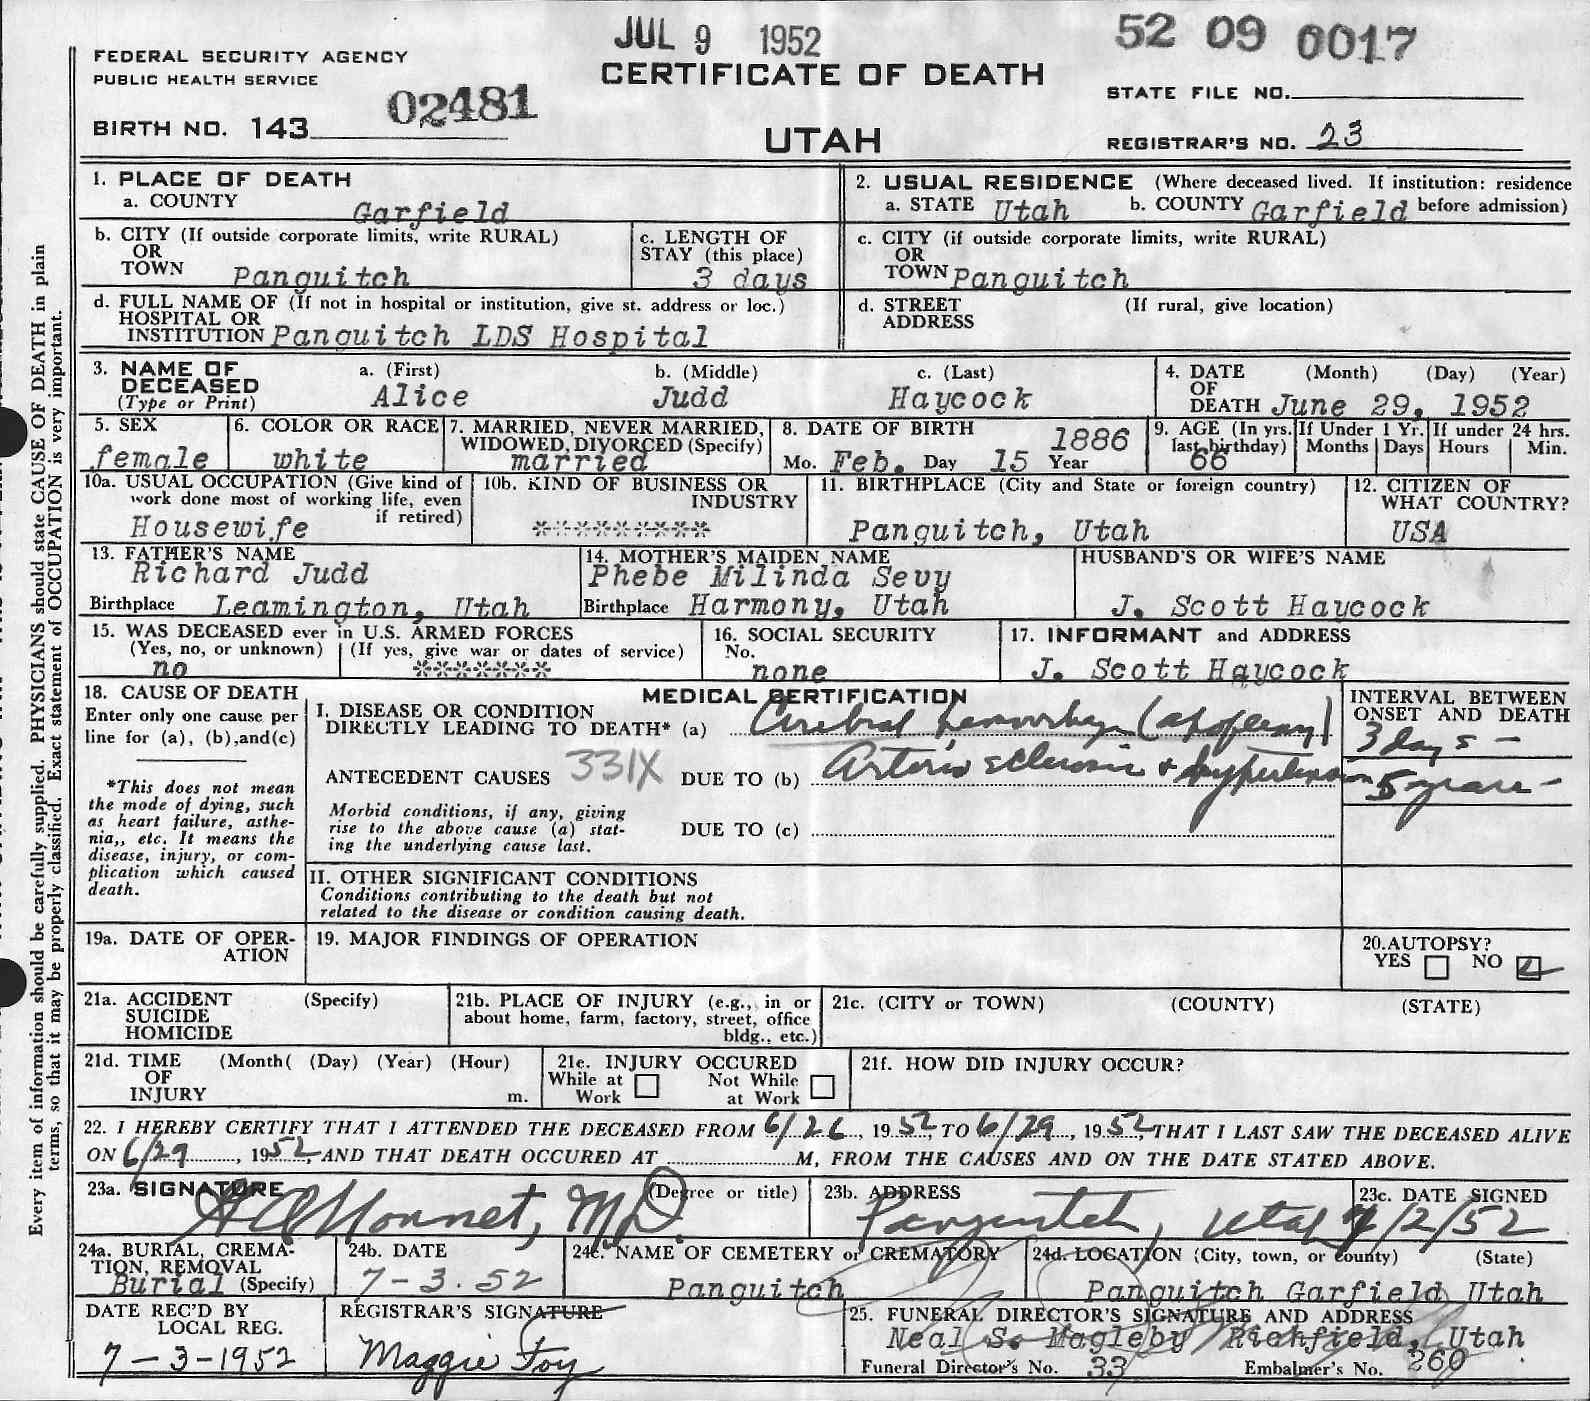 JUL 9 1952
52 09 0017
FEDERAL SECURITY AGENCY
PUBLIC HEALTH SERVICE
CERTIFICATE OF DEATH
STATE FILE NO.
BIRTH NO. 143 02481
UTAH
REGISTRAR'S NO. 23
Every item of information should be carefully supplied. PHYSICIANS should state CAUSE OF DEATH in plain
terms, so that it may be properly classified. Exact statement of OCCUPATION is very important.
1. PLACE OF DEATH
a. COUNTY Garfield
2. USUAL RESIDENCE (Where deceased lived. If institution: residence
a. STATE Utah b. COUNTY Garfield before admission)
b. CITY (If outside corporate limits, write RURAL)
OR
TOWN Panguitch
c. LENGTH OF
STAY (this place)
3 days
c. CITY (if outside corporate limits, write RURAL)
OR
TOWN Panguitch
d. FULL NAME OF (If not in hospital or institution, give st. address or loc.)
HOSPITAL OR
INSTITUTION Panguitch LDS Hospital
d. STREET (If rural, give location)
ADDRESS
3. NAME OF
DECEASED
(Type or Print)
a. (First)
Alice
b. (Middle)
Judd
c. (Last)
Haycock
4. DATE (Month) (Day) (Year)
OF
DEATH June 29, 1952
5. SEX
female
6. COLOR OR RACE
white
7. MARRIED, NEVER MARRIED,
WIDOWED, DIVORCED (Specify)
married
8. DATE OF BIRTH 1886
Mo. Feb. Day 15 Year
9. AGE (In yrs.
last birthday)
66
If Under 1 Yr.
Months Days
If under 24 hrs.
Hours Min.
10a. USUAL OCCUPATION (Give kind of
work done most of working life, even
if retired)
Housewife
10b. KIND OF BUSINESS OR
INDUSTRY
*********
11. BIRTHPLACE (City and State or foreign country)
Panguitch, Utah
12. CITIZEN OF
WHAT COUNTRY?
USA
13. FATHER'S NAME
Richard Judd
Birthplace Leamington, Utah
14. MOTHER'S MAIDEN NAME
Phebe Milinda Sevy
Birthplace Harmony, Utah
HUSBAND'S OR WIFE'S NAME
J. Scott Haycock
15. WAS DECEASED ever in U.S. ARMED FORCES
(Yes, no, or unknown) (If yes, give war or dates of service)
no *******
16. SOCIAL SECURITY
No.
none
17. INFORMANT and ADDRESS
J. Scott Haycock
18. CAUSE OF DEATH
Enter only one cause per
line for (a), (b),and(c)
*This does not mean
the mode of dying, such
as heart failure, asthe-
nia,, etc. It means the
disease, injury, or com-
plication which caused
death.
MEDICAL CERTIFICATION
I. DISEASE OR CONDITION
DIRECTLY LEADING TO DEATH* (a) Cerebral hemorrhage (apoplexy)
ANTECEDENT CAUSES 331X DUE TO (b) Arterio sclerosis + hypertension
Morbid conditions, if any, giving
rise to the above cause (a) stat-
ing the underlying cause last.
DUE TO (c)
INTERVAL BETWEEN
ONSET AND DEATH
3 days -
5 years -
II. OTHER SIGNIFICANT CONDITIONS
Conditions contributing to the death but not
related to the disease or condition causing death.
19a. DATE OF OPER-
ATION
19. MAJOR FINDINGS OF OPERATION
20.AUTOPSY?
YES NO
21a. ACCIDENT (Specify)
SUICIDE
HOMICIDE
21b. PLACE OF INJURY (e.g., in or
about home, farm, factory, street, office
bldg., etc.)
21c. (CITY or TOWN) (COUNTY) (STATE)
21d. TIME (Month( (Day) (Year) (Hour)
OF
INJURY m.
21e. INJURY OCCURED
While at Not While
Work at Work
21f. HOW DID INJURY OCCUR?
22. I HEREBY CERTIFY THAT I ATTENDED THE DECEASED FROM 6/26, 1952, TO 6/29, 1952, THAT I LAST SAW THE DECEASED ALIVE
ON 6/29, 1952, AND THAT DEATH OCCURED AT M, FROM THE CAUSES AND ON THE DATE STATED ABOVE.
23a. SIGNATURE (Degree or title)
M.D.
23b. ADDRESS
Panguitch, Utah
23c. DATE SIGNED
7/2/52
24a. BURIAL, CREMA-
TION, REMOVAL
Burial (Specify)
24b. DATE
7-3.52
24c. NAME OF CEMETERY or CREMATORY
Panguitch
24d. LOCATION (City, town, or county) (State)
Panguitch Garfield Utah
DATE REC'D BY
LOCAL REG.
7-3-1952
REGISTRAR'S SIGNATURE
Maggie Foy
25. FUNERAL DIRECTOR'S SIGNATURE AND ADDRESS
Neal S. Magleby Richfield, Utah
Funeral Director's No. 33 Embalmer's No. 260